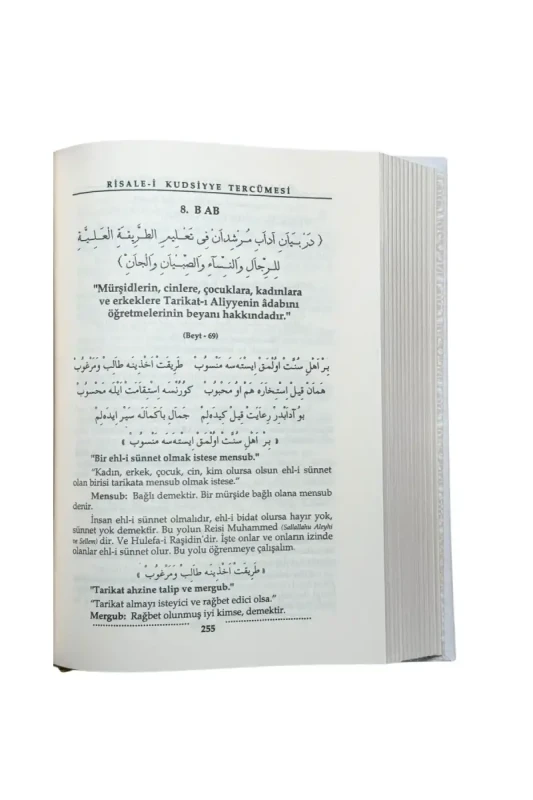 RİSALE-İ KUDSİYYE TERCÜMESİ
8. BAB
( دَرْ بَيَانِ آدَابِ مُرْشِدَانْ فِى تَعْلِيمِ الطَّرِيقَةِ الْعَلِيَّةِ
لِلرِّجَالِ وَالنِّسَآءِ وَالصِّبْيَانِ وَالْجَانِّ )
"Mürşidlerin, cinlere, çocuklara, kadınlara
ve erkeklere Tarikat-ı Aliyyenin âdabını
öğretmelerinin beyanı hakkındadır."
(Beyt - 69)
بِرْ اَهْلِ سُنَّتْ اُولْمَقْ اِيسْتَه سَه مَنْسُوبْ طَرِيقَتْ اَخْذِينَه طَالِبْ وَمَرْغُوبْ
هَمَانْ قِيلْ اِسْتِخَارَه هَمْ اُو مَحْبُوبْ كُورُنْسَه اِسْتِقَامَتْ اَيْلَه مَحْسُوبْ
بُو آدَابْدَرْ رِعَايَتْ قِيلْ كِيدَه لِمْ جَمَالِ بَاكَمَالَه سَيْرْ اِيدَه لِمْ
« بِرْ اَهْلِ سُنَّتْ اُولْمَقْ اِيسْتَه سَه مَنْسُوبْ »
"Bir ehl-i sünnet olmak istese mensub."
"Kadın, erkek, çocuk, cin, kim olursa olsun ehl-i sünnet
olan birisi tarikata mensub olmak istese."
Mensub: Bağlı demektir. Bir mürşide bağlı olana mensub
denir.
İnsan ehl-i sünnet olmalıdır, ehl-i bidat olursa hayır yok,
sünnet yok demektir. Bu yolun Reisi Muhammed (Sallallahu Aleyhi
ve Sellem) dir. Ve Hulefa-i Raşidin'dir. İşte onlar ve onların izinde
olanlar ehl-i sünnet olur. Bu yolu öğrenmeye çalışalım.
« طَرِيقَتْ اَخْذِينَه طَالِبْ وَمَرْغُوبْ »
"Tarikat ahzine talip ve mergub."
"Tarikat almayı isteyici ve rağbet edici olsa."
Mergub: Rağbet olunmuş iyi kimse, demektir.
255